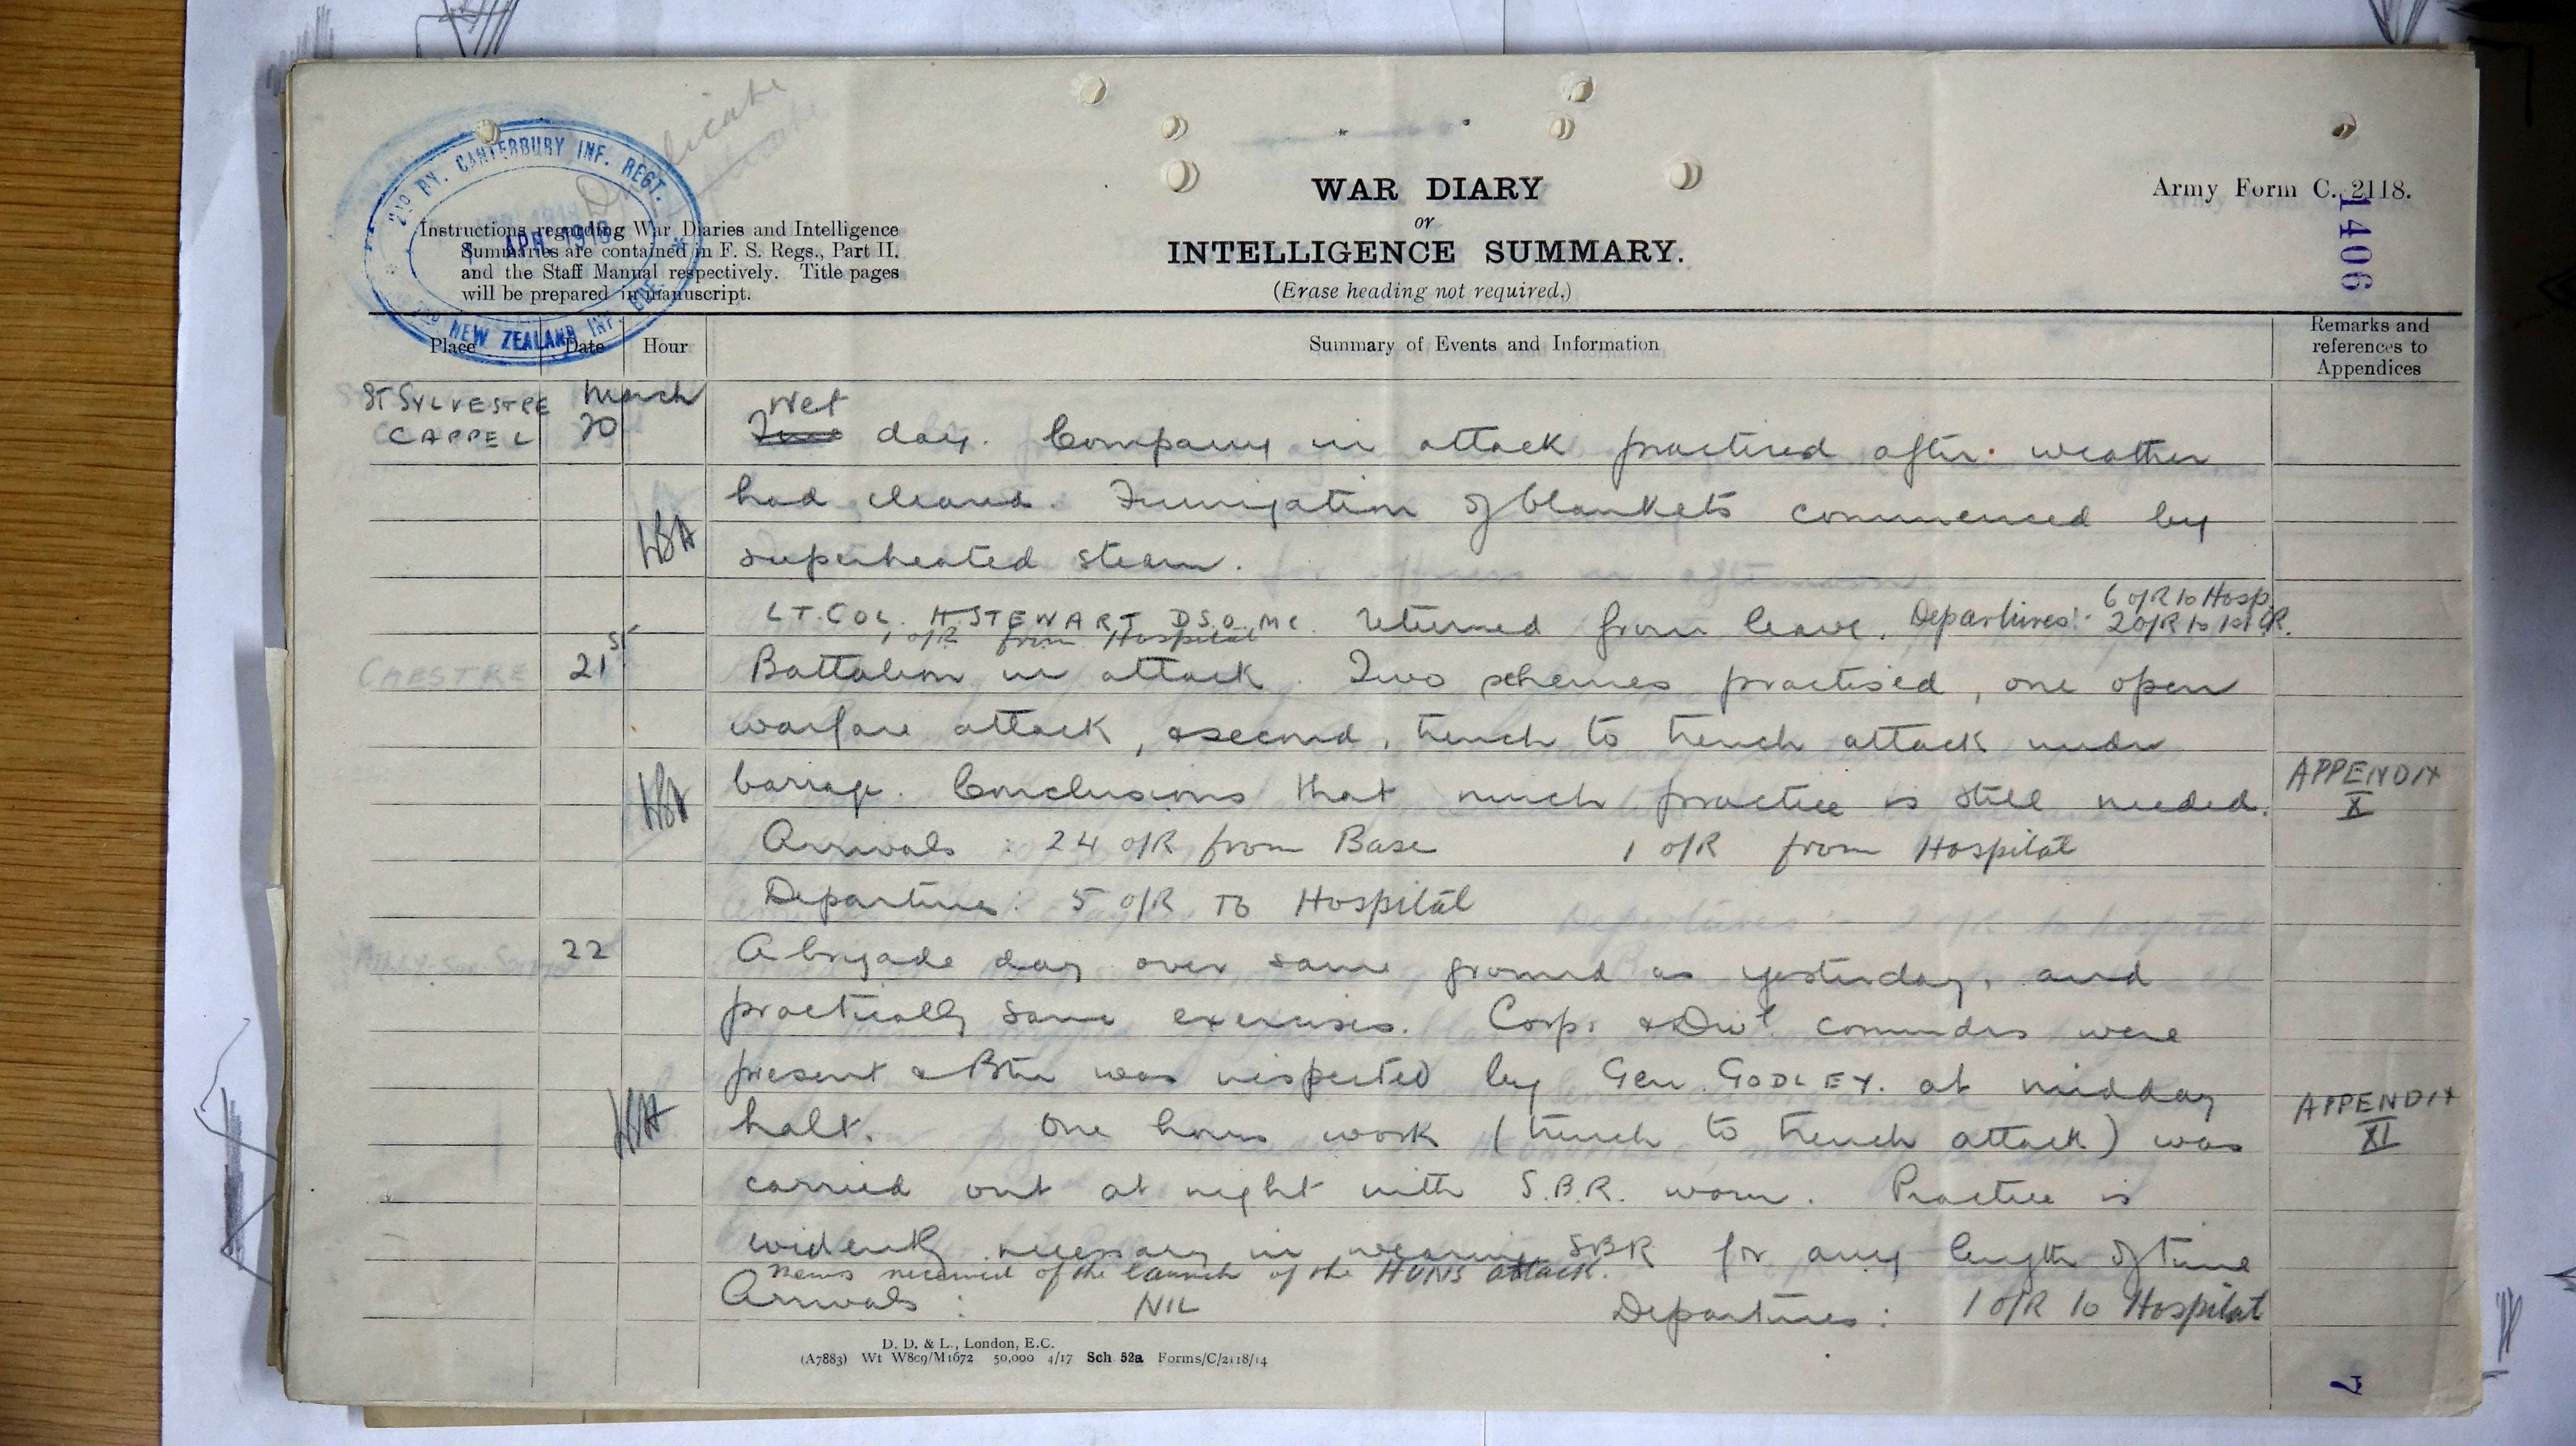 Duplicate
2ND BN. CANTERBURY INF. REGT.
APR 1918
NEW ZEALAND INF. BDE.
Instructions regarding War Diaries and Intelligence
Summaries are contained in F. S. Regs., Part II.
and the Staff Manual respectively. Title pages
will be prepared in manuscript.
WAR DIARY
or
INTELLIGENCE SUMMARY.
(Erase heading not required.)
Army Form C. 2118.
1406
Place Date Hour Summary of Events and Information Remarks and
references to
Appendices
ST SYLVESTRE March Wet
CAPPEL 20 Fine day. Company in attack practised after weather
had cleared. Fumigation of blankets commenced by
superheated steam.
LT. COL. H. STEWART DSO. MC. returned from leave. Departures: 6 o/R to Hosp.
1 o/R from Hospital 2 o/R to
21st Battalion in attack. Two schemes practised, one open
warfare attack, & second, trench to trench attack under
barrage. Conclusions that much practice is still needed. APPENDIX
X
Arrivals : 24 o/R from Base 1 o/R from Hospital
Departures : 5 o/R To Hospital
22 A brigade day over same ground as yesterday, and
practically same exercises. Corps & Divl. commdrs were
present & Btn was inspected by Gen. GODLEY. at midday
halt. One hours work (trench to trench attack) was APPENDIX
XI
carried out at night with S.B.R. worn. Practice is
evidently necessary in wearing SBR for any length of time
News received of the launch of the HUNS attack.
Arrivals : NIL Departures : 1 o/R to Hospital
D. D. & L., London, E.C.
(A7883) Wt W809/M1672 50,000 4/17 Sch 52a Forms/C/2118/14
7